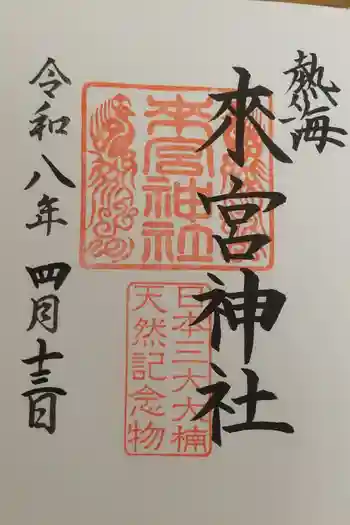 熱海
來宮神社
来宮神社
日本三大大楠
天然記念物
令和八年 四月十三日